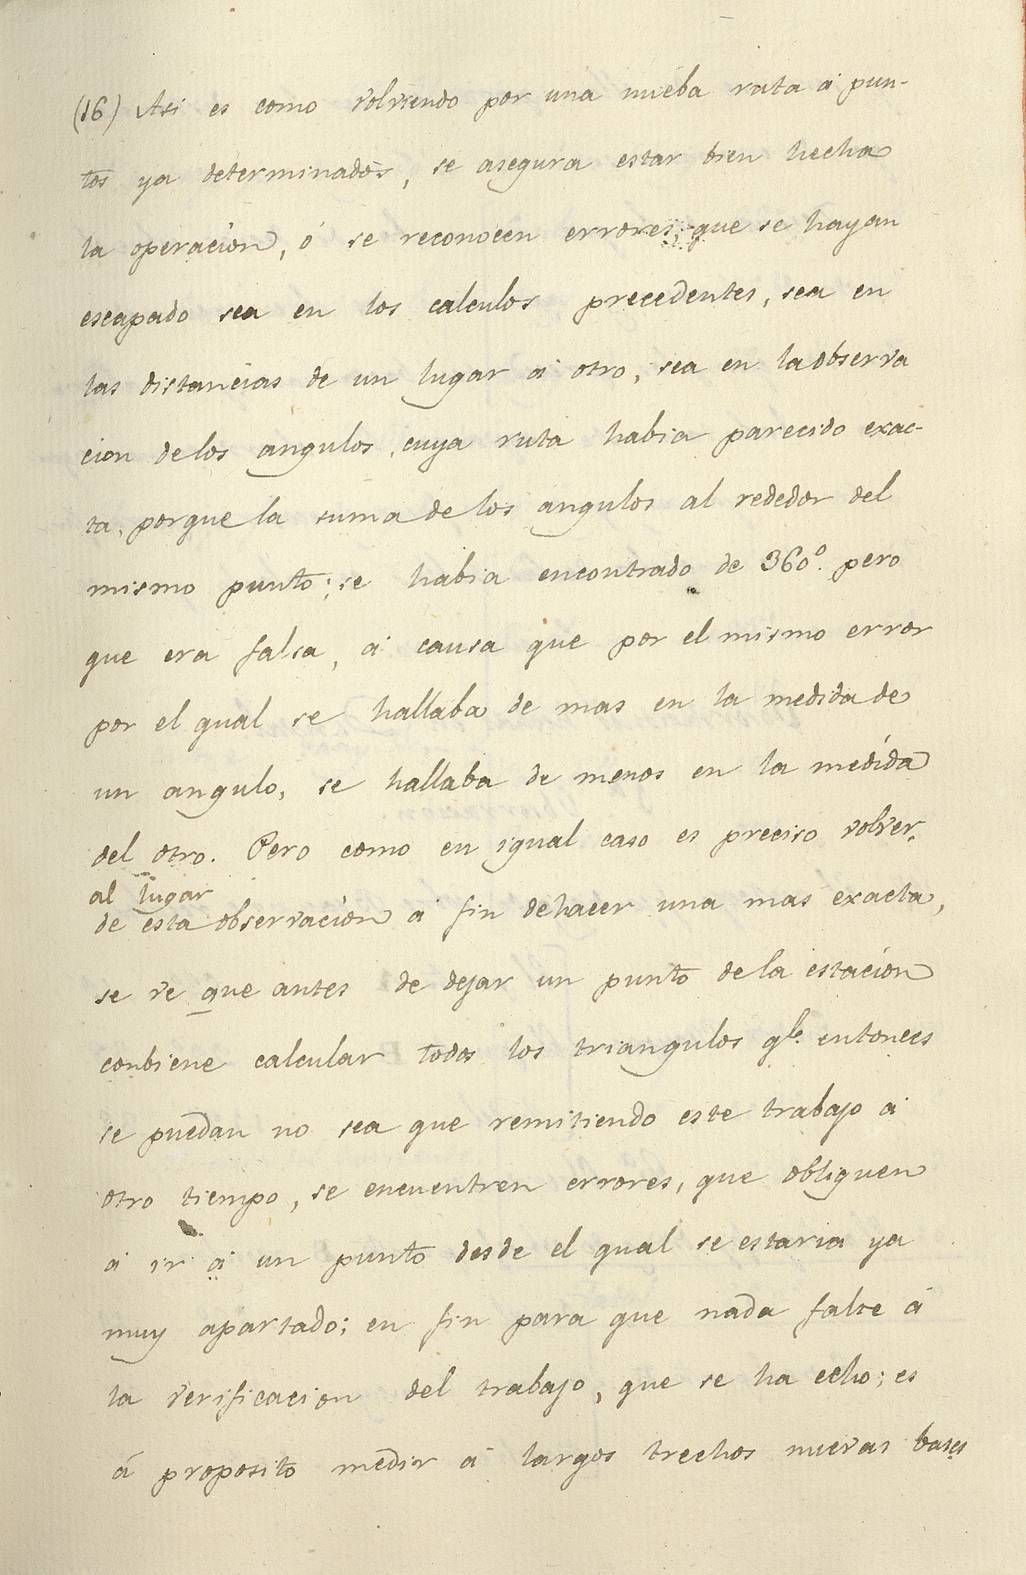 (16) Asi es como volviendo por una nueba ruta á pun-
tos ya determinados, se asegura estar bien hecha
la operacion, ó se reconocen errores, que se hayan
escapado sea en los calculos precedentes, sea en
las distancias de un lugar á otro, sea en la observa
cion de los angulos, cuya ruta habia parecido exac-
ta, porque la suma de los angulos al rededor del
mismo punto; se habia encontrado de 360º. pero
que era falsa, á causa que por el mismo error
por el qual se hallaba de mas en la medida de
un angulo, se hallaba de menos en la medida
del otro. Pero como en igual caso es preciso volver
al lugar
de esta observacion á fin de hacer una mas exacta,
se ve que antes de dejar un punto de la estacion
conbiene calcular todos los triangulos qe. entonces
se puedan no sea que remitiendo este trabajo á
otro tiempo, se encuentren errores, que obliguen
á ir á un punto desde el qual se estaria ya
muy apartado; en fin para que nada falte á
la verificacion del trabajo, que se ha echo; es
á proposito medir á largos trechos nuevas bases